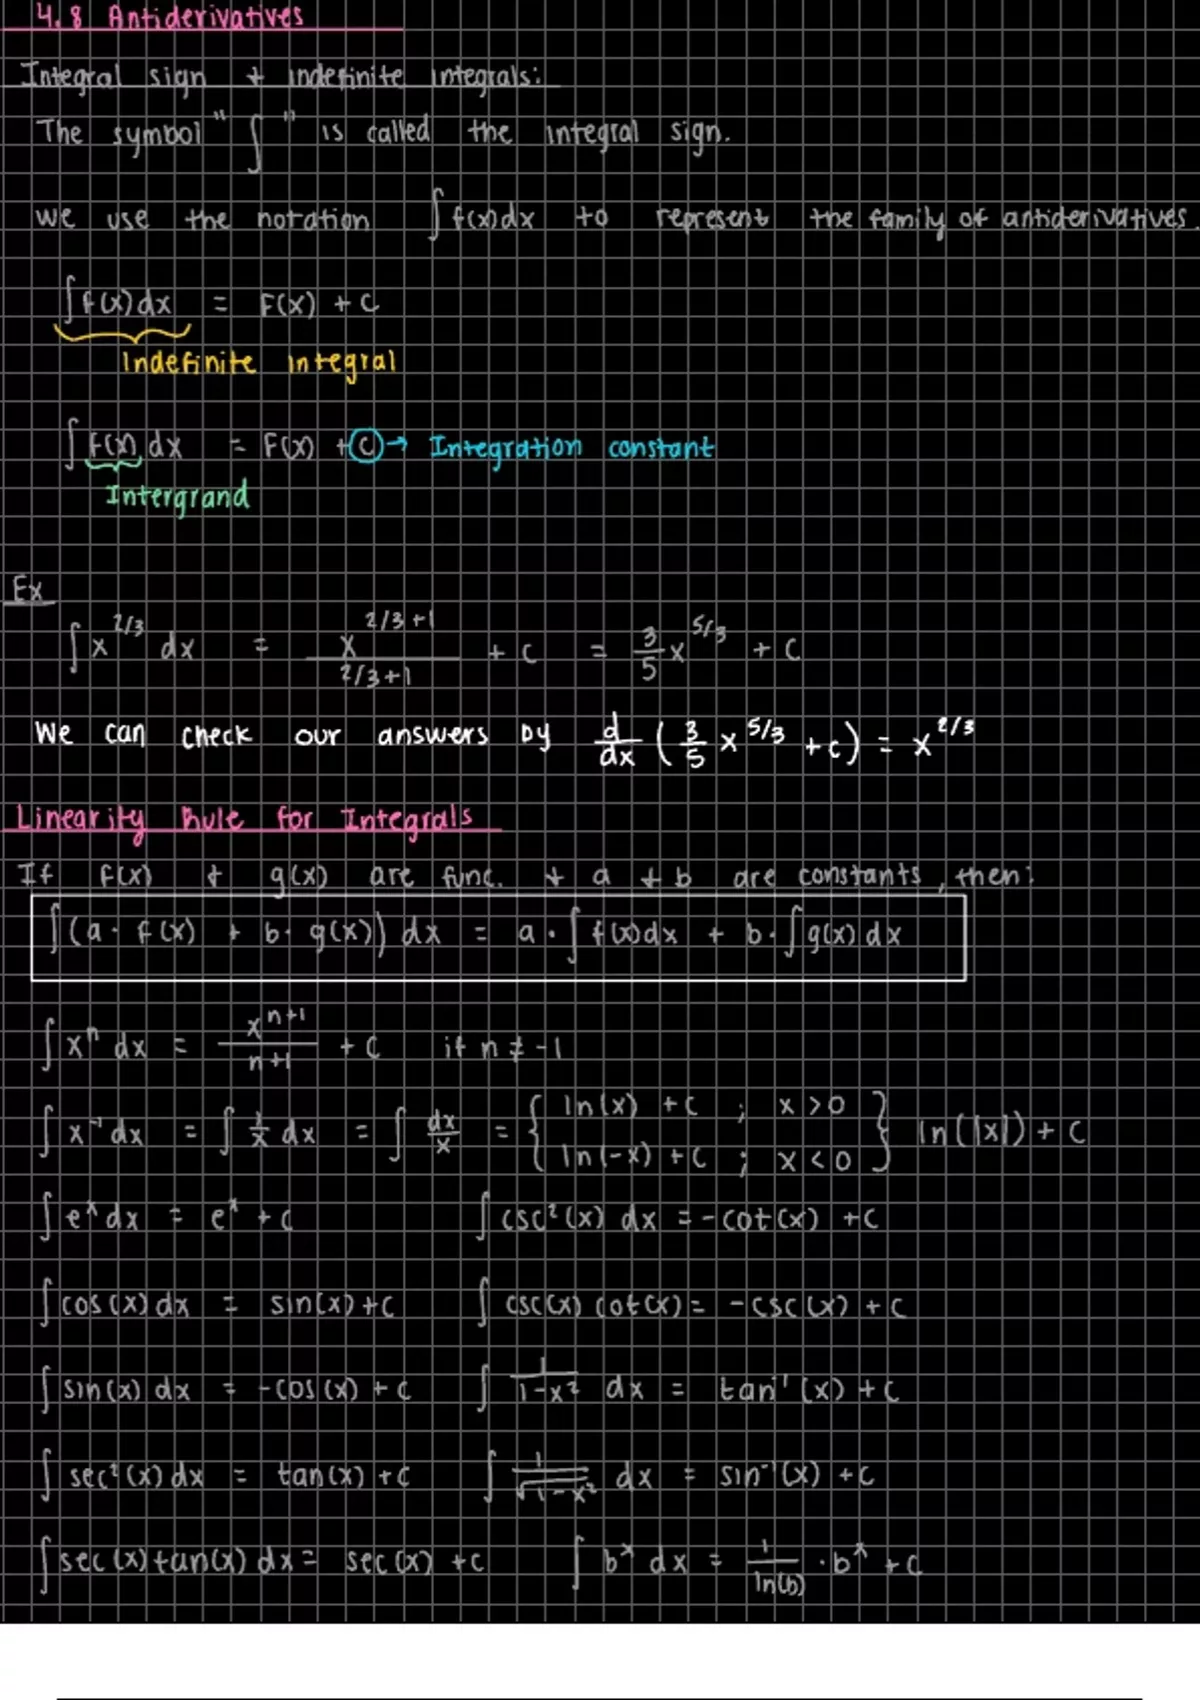 4.8 Antiderivatives
Integral sign + indefinite integrals:
The symbol "∫" is called the integral sign.
We use the notation ∫ f(x)dx to represent the family of antiderivatives.
∫ f(x)dx = F(x) + C
Indefinite integral
∫ f(x) dx = F(x) + C → Integration constant
Intergrand
Ex
∫ x^2/3 dx = x^2/3+1 / 2/3+1 + C = 3/5 x^5/3 + C
We can check our answers by d/dx (3/5 x^5/3 + C) = x^2/3
Linearity Rule for Integrals
If f(x) + g(x) are func. + a + b are constants, then:
∫(a · f(x) + b · g(x)) dx = a · ∫ f(x)dx + b · ∫ g(x) dx
∫ x^n dx = x^n+1 / n+1 + C if n ≠ -1
∫ x^-1 dx = ∫ 1/x dx = ∫ dx/x = { ln(x) + C ; x > 0
ln(-x) + C ; x < 0 } ln(|x|) + C
∫ e^x dx = e^x + C ∫ csc²(x) dx = -cot(x) + C
∫ cos(x) dx = sin(x) + C ∫ csc(x) cot(x) = -csc(x) + C
∫ sin(x) dx = -cos(x) + C ∫ 1/1-x² dx = tan^-1(x) + C
∫ sec²(x) dx = tan(x) + C ∫ 1/√1-x² dx = sin^-1(x) + C
∫ sec(x) tan(x) dx = sec(x) + C ∫ b^x dx = 1/ln(b) · b^x + C